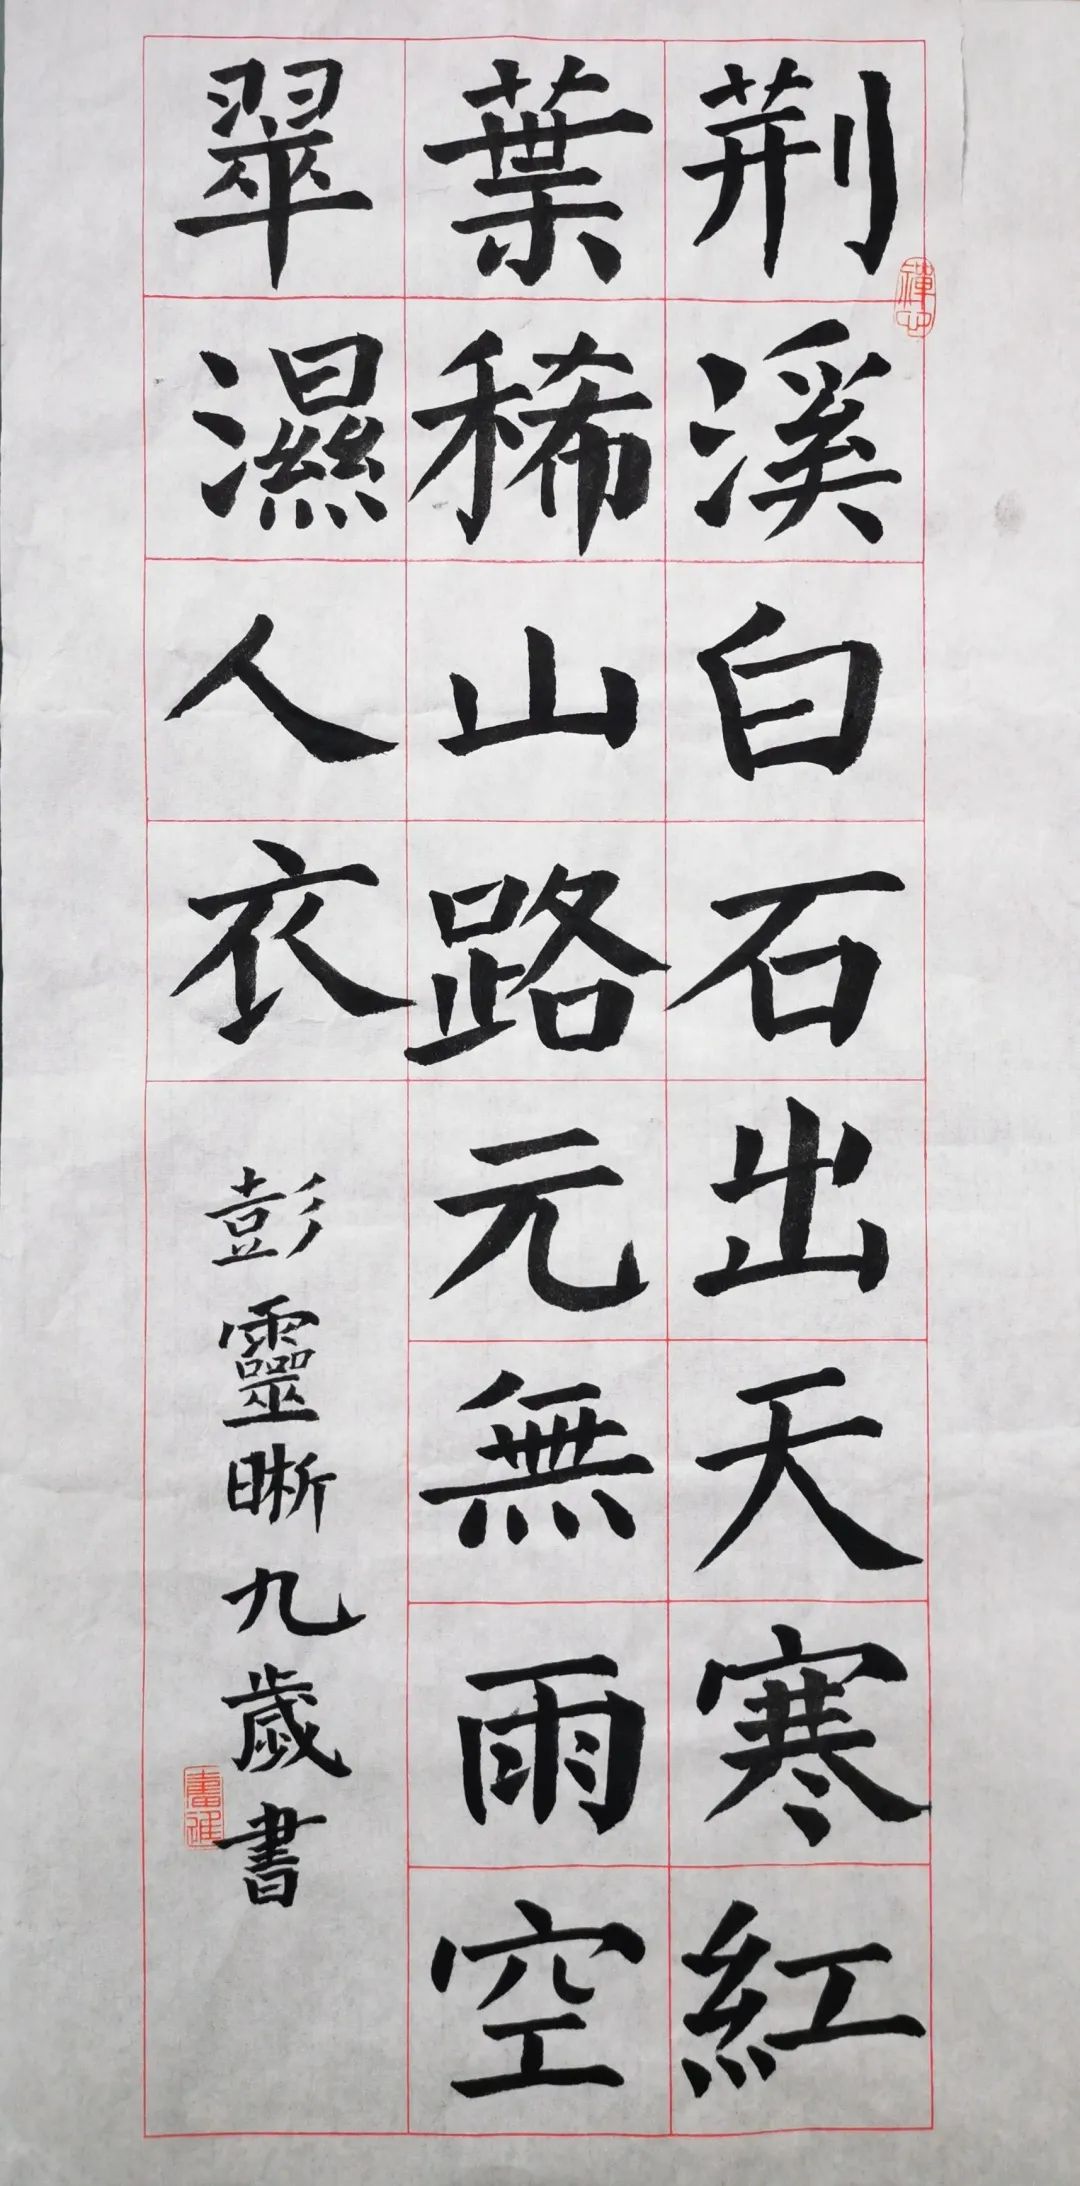 荆溪白石出天寒紅
葉稀山路元無雨空
翠濕人衣
彭靈晰九歲書
禪心